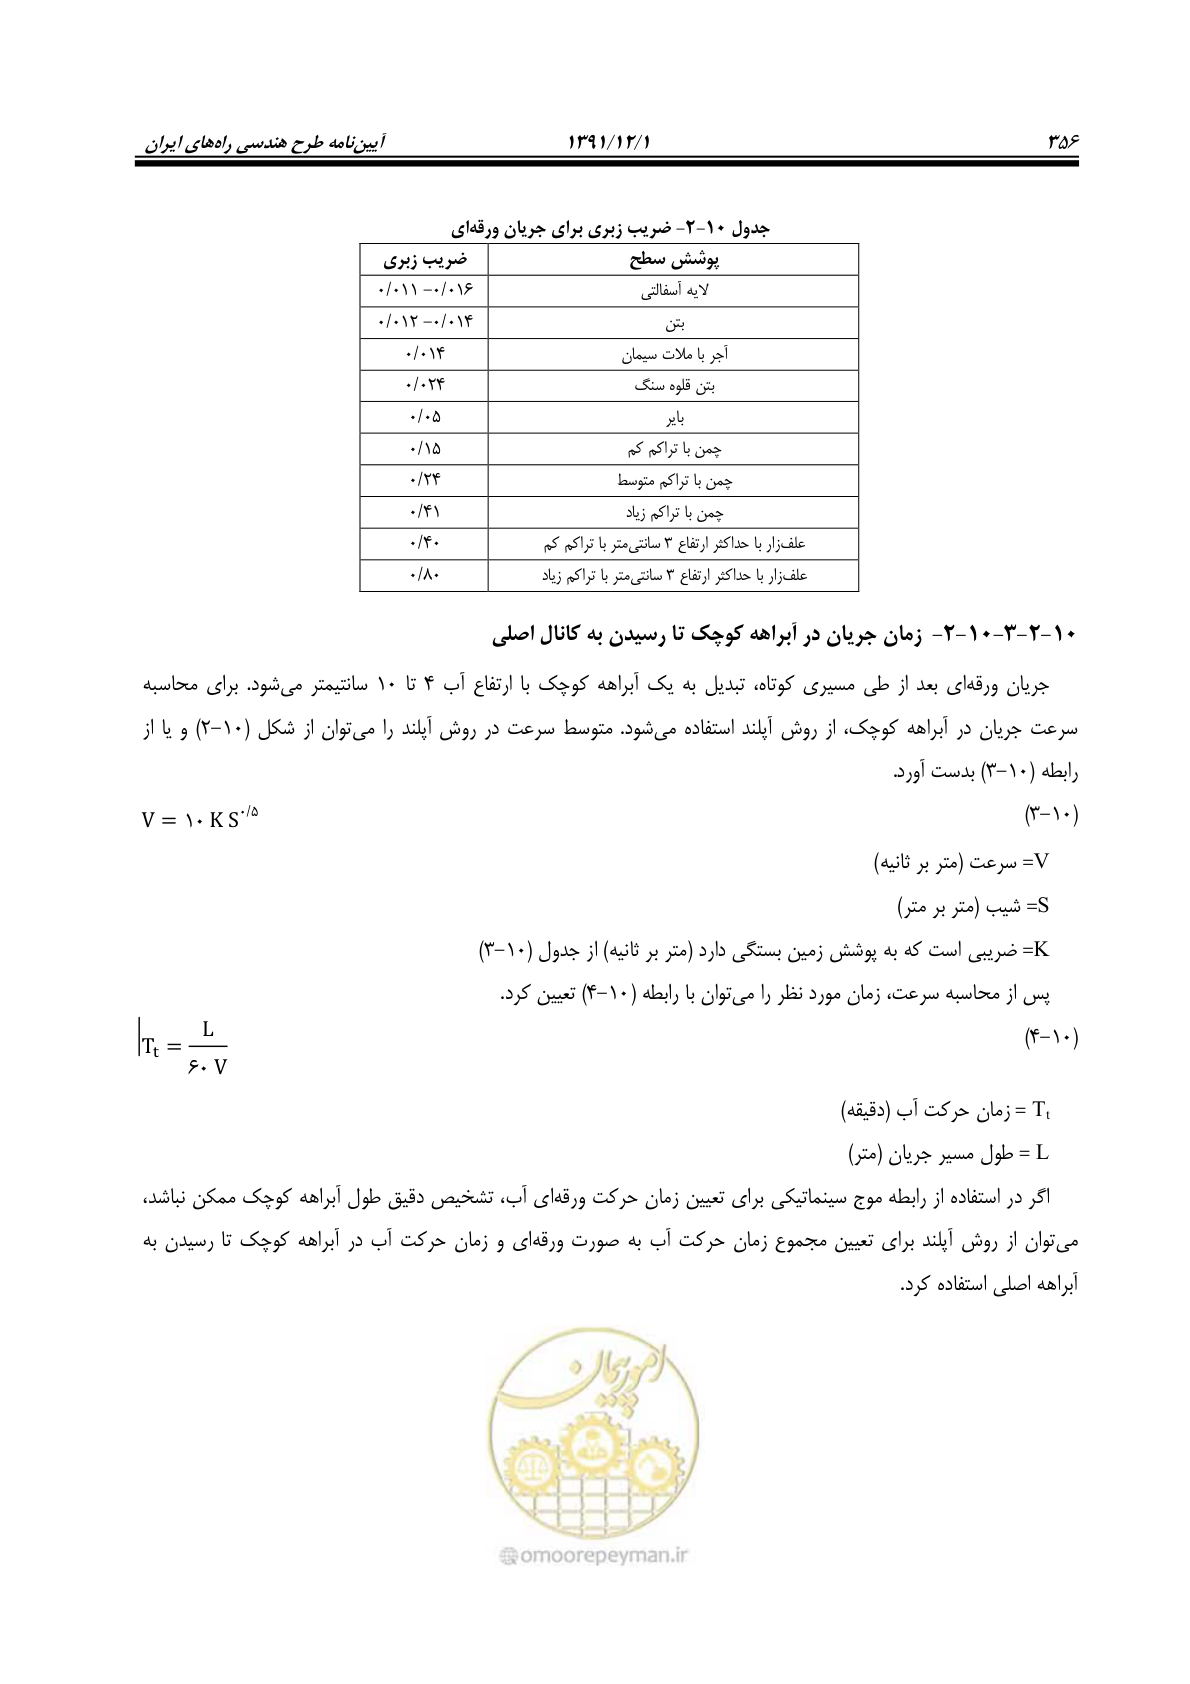 ۳۵۶ ۱۳۹۱/۱۲/۱ آیین‌نامه طرح هندسی راه‌های ایران
جدول ۱۰-۲- ضریب زبری برای جریان ورقه‌ای
پوشش سطح ضریب زبری
لایه آسفالتی ۰/۰۱۱ –۰/۰۱۶
بتن ۰/۰۱۲ –۰/۰۱۴
آجر با ملات سیمان ۰/۰۱۴
بتن قلوه سنگ ۰/۰۲۴
بایر ۰/۰۵
چمن با تراکم کم ۰/۱۵
چمن با تراکم متوسط ۰/۲۴
چمن با تراکم زیاد ۰/۴۱
علف‌زار با حداکثر ارتفاع ۳ سانتی‌متر با تراکم کم ۰/۴۰
علف‌زار با حداکثر ارتفاع ۳ سانتی‌متر با تراکم زیاد ۰/۸۰
۱۰-۲-۳-۱۰-۲- زمان جریان در آبراهه کوچک تا رسیدن به کانال اصلی
جریان ورقه‌ای بعد از طی مسیری کوتاه، تبدیل به یک آبراهه کوچک با ارتفاع آب ۴ تا ۱۰ سانتیمتر می‌شود. برای محاسبه
سرعت جریان در آبراهه کوچک، از روش آپلند استفاده می‌شود. متوسط سرعت در روش آپلند را می‌توان از شکل (۱۰-۲) و یا از
رابطه (۱۰-۳) بدست آورد.
(۱۰-۳) V = ۱۰ K S^۰/۵
V= سرعت (متر بر ثانیه)
S= شیب (متر بر متر)
K= ضریبی است که به پوشش زمین بستگی دارد (متر بر ثانیه) از جدول (۱۰-۳)
پس از محاسبه سرعت، زمان مورد نظر را می‌توان با رابطه (۱۰-۴) تعیین کرد.
(۱۰-۴) Tt = L / ۶۰ V
Tt = زمان حرکت آب (دقیقه)
L = طول مسیر جریان (متر)
اگر در استفاده از رابطه موج سینماتیکی برای تعیین زمان حرکت ورقه‌ای آب، تشخیص دقیق طول آبراهه کوچک ممکن نباشد،
می‌توان از روش آپلند برای تعیین مجموع زمان حرکت آب به صورت ورقه‌ای و زمان حرکت آب در آبراهه کوچک تا رسیدن به
آبراهه اصلی استفاده کرد.
امور پیمان
omoorepeyman.ir